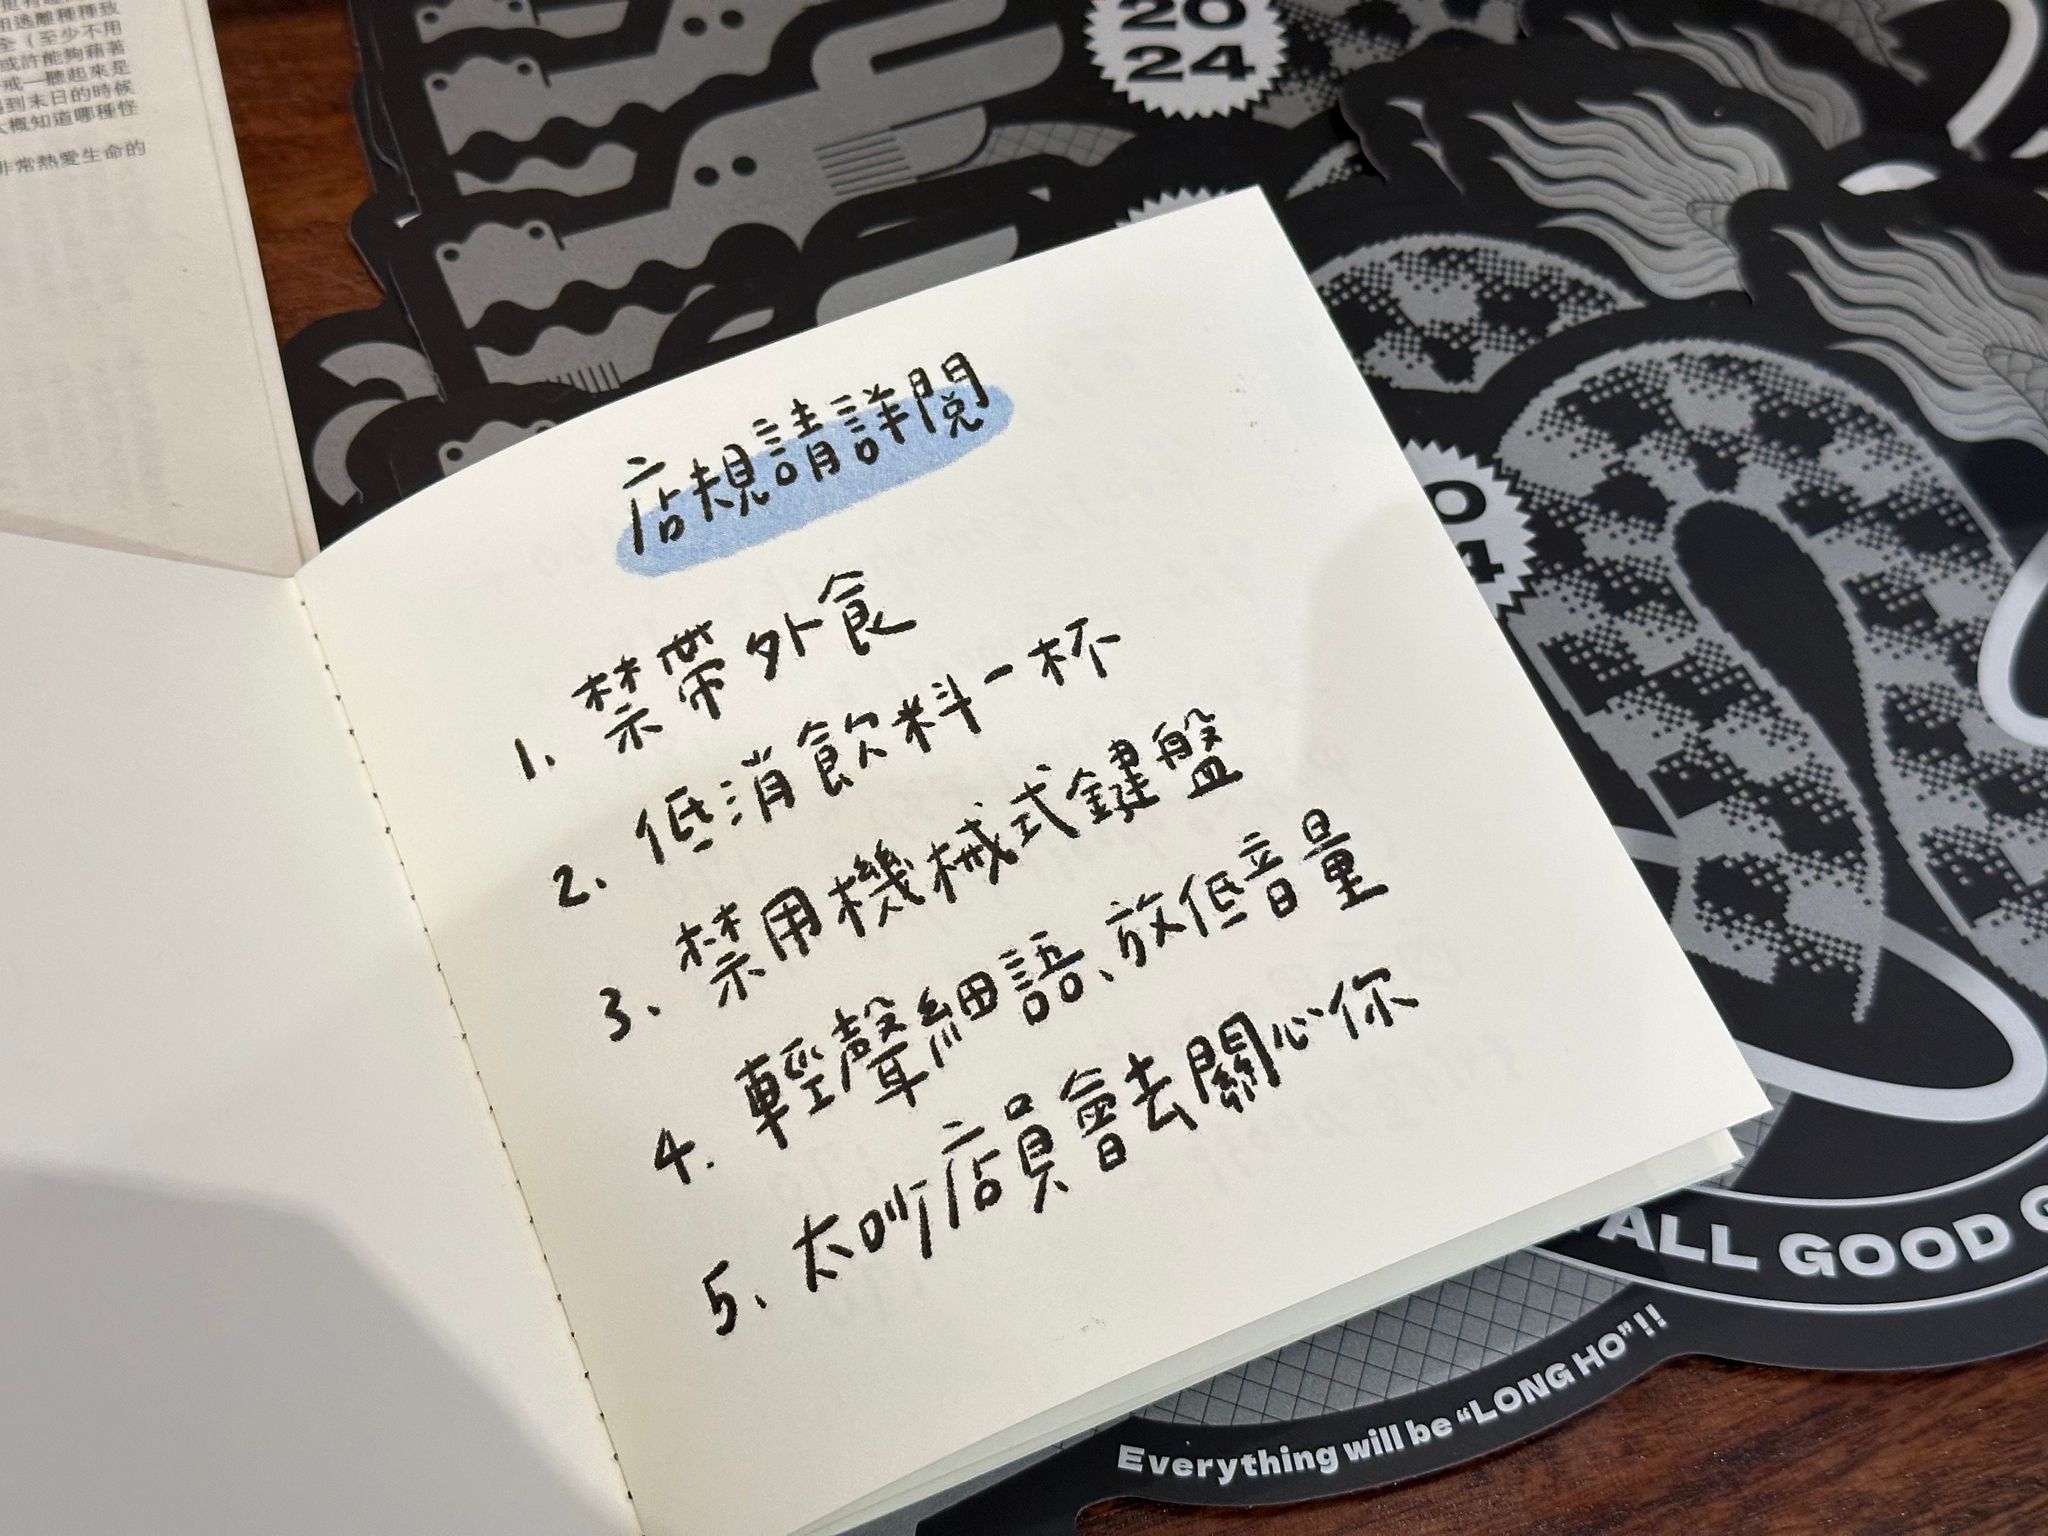 店規請詳閱
1. 禁帶外食
2. 低消飲料一杯
3. 禁用機械式鍵盤
4. 輕聲細語、放低音量
5. 太吵店員會去關心你
全（至少不用
或許能夠藉著
戒—聽起來是
到末日的時候
概知道哪種怪
非常熱愛生命的
20
24
ALL GOOD
Everything will be “LONG HO”!!